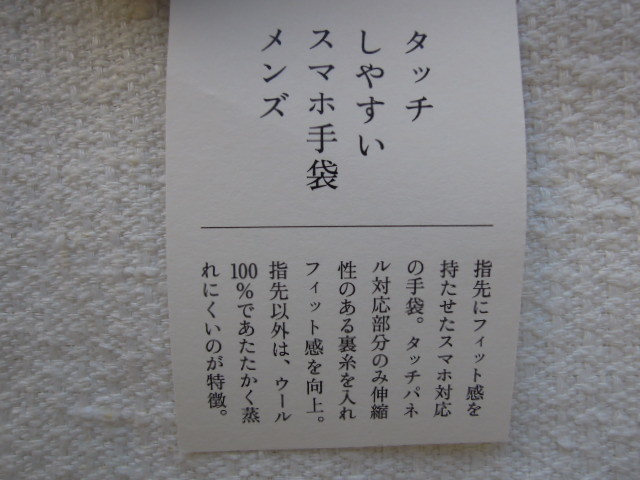 タッチ
しやすい
スマホ手袋
メンズ
指先にフィット感を
持たせたスマホ対応
の手袋。タッチパネ
ル対応部分のみ伸縮
性のある裏糸を入れ
フィット感を向上。
指先以外は、ウール
100%であたたかく蒸
れにくいのが特徴。